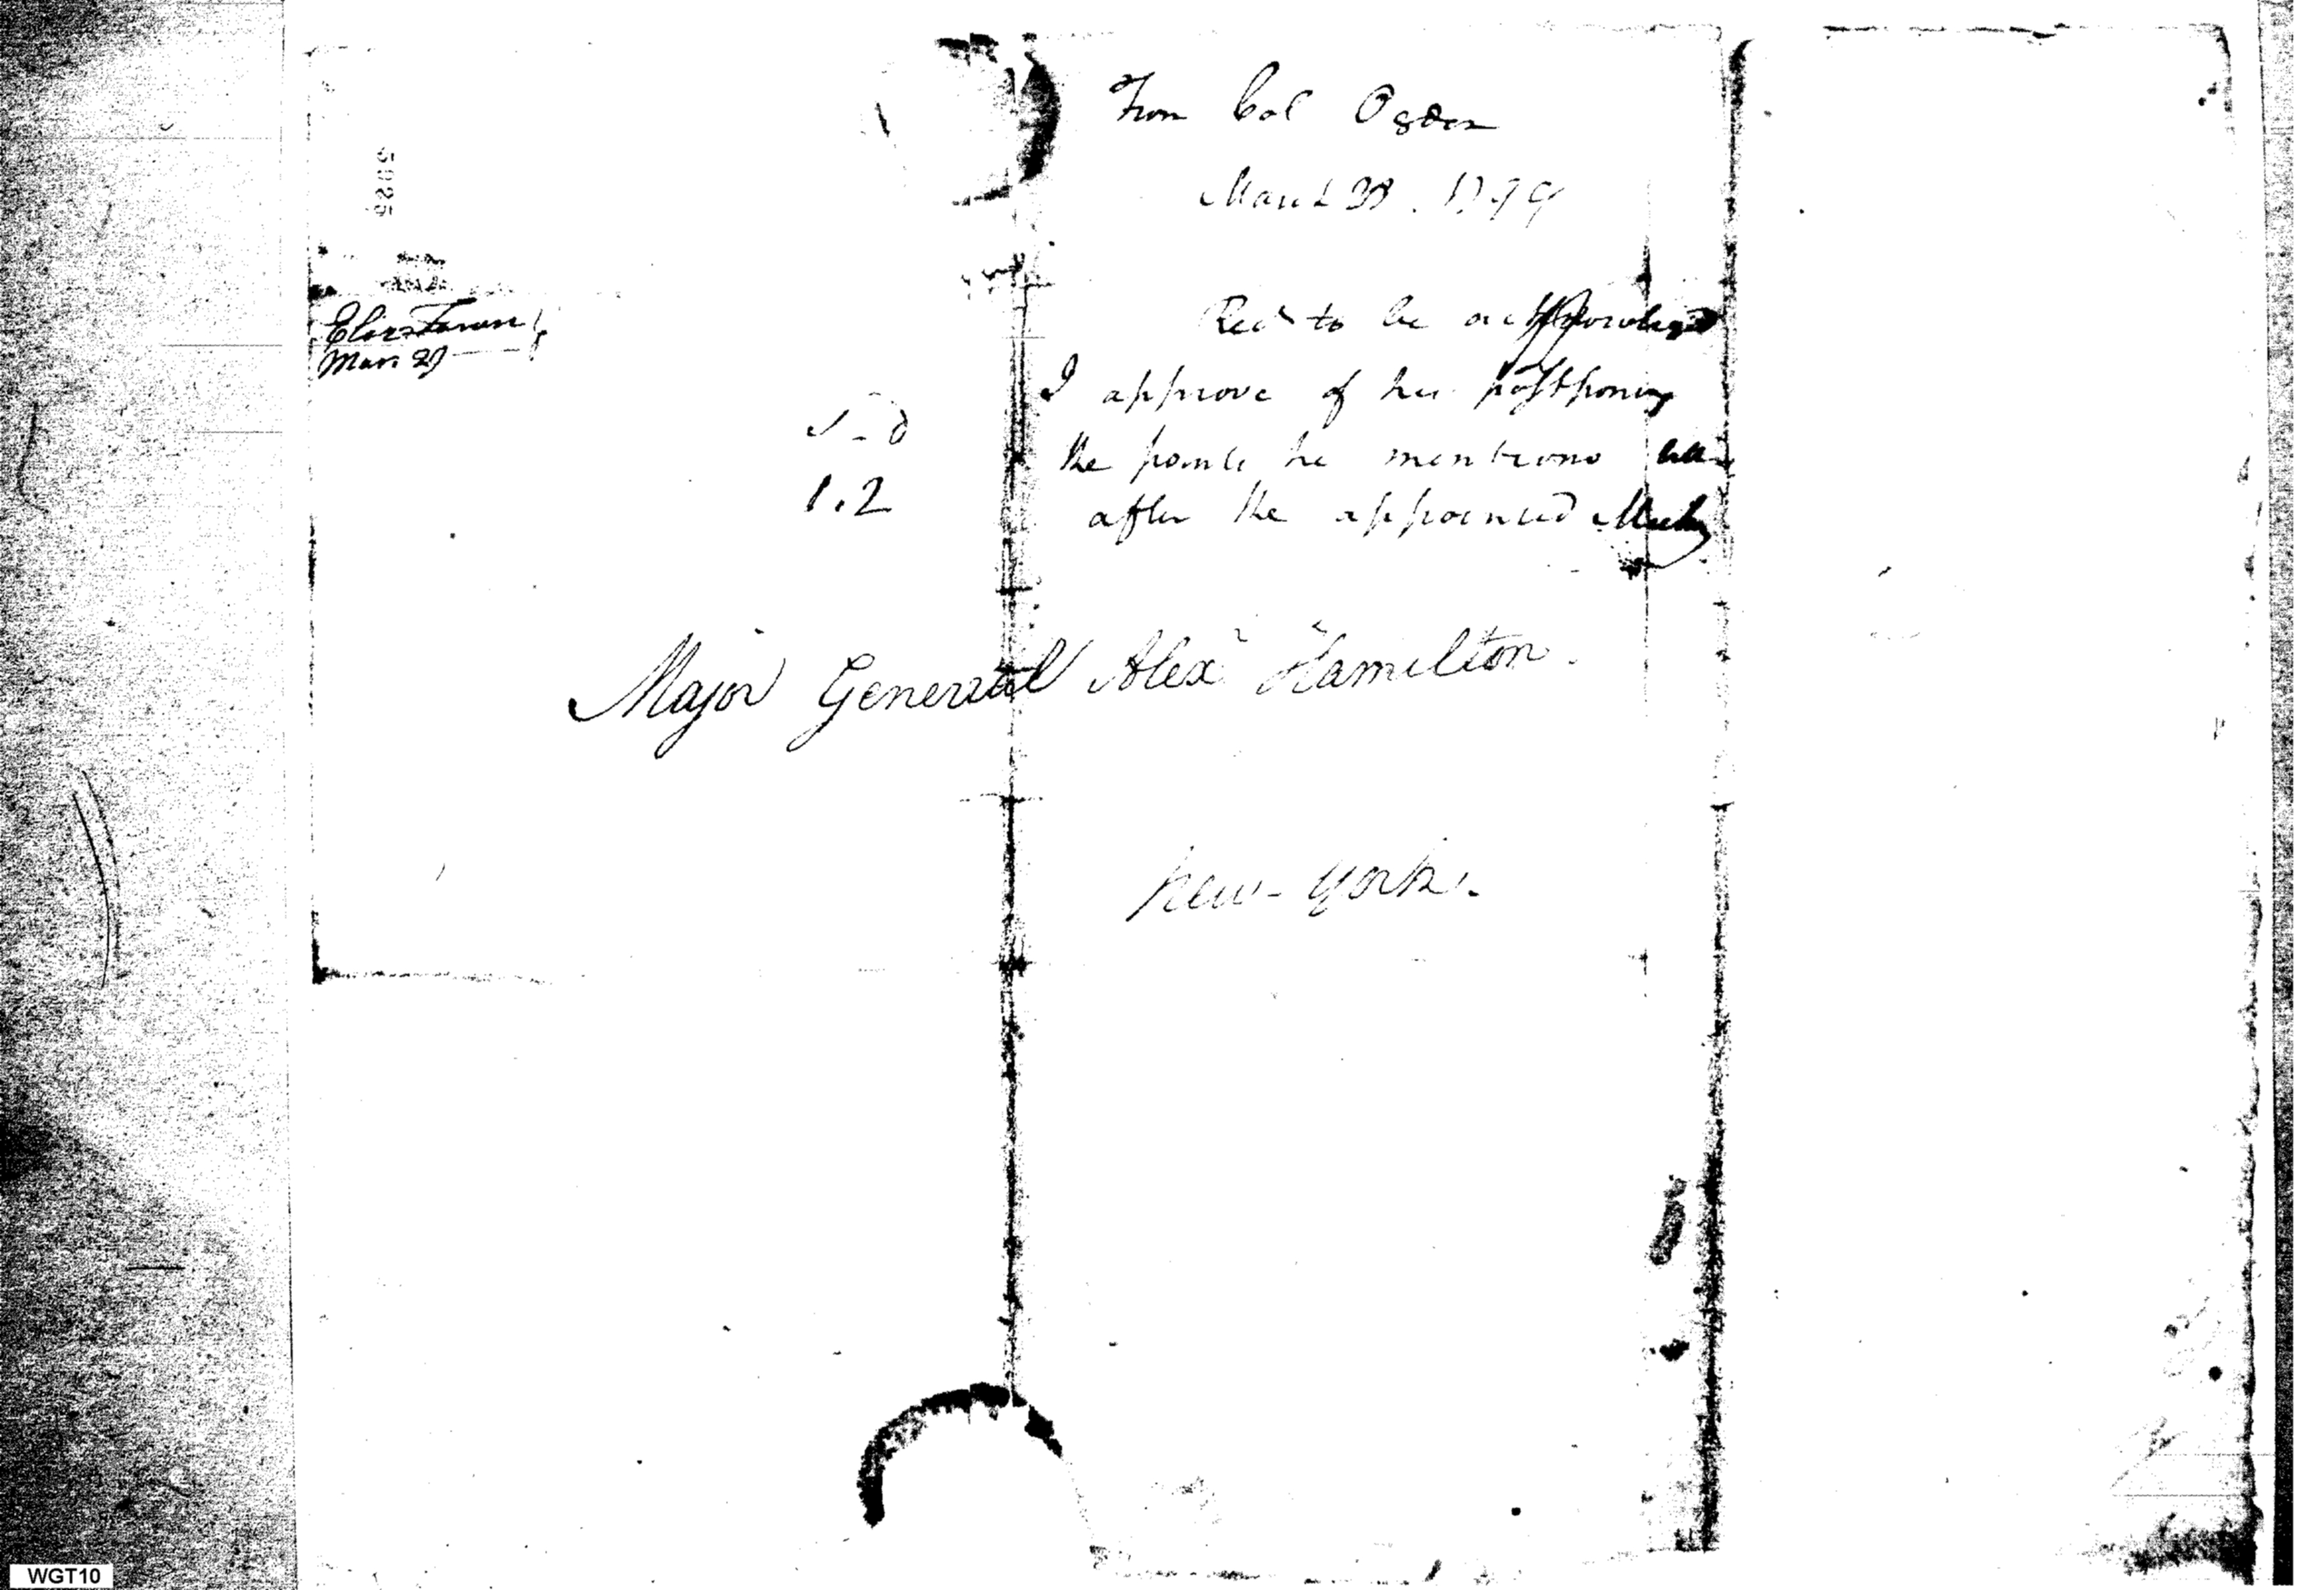 5025
Eliz Town
Mar 29
1.2
From Col Ogden
March 28. 1799
Recd to be acknowleged
I approve of his postponing
the points he mentions till
after the appointed Meeting
Major General Alexr Hamilton.
New-York.
WGT10